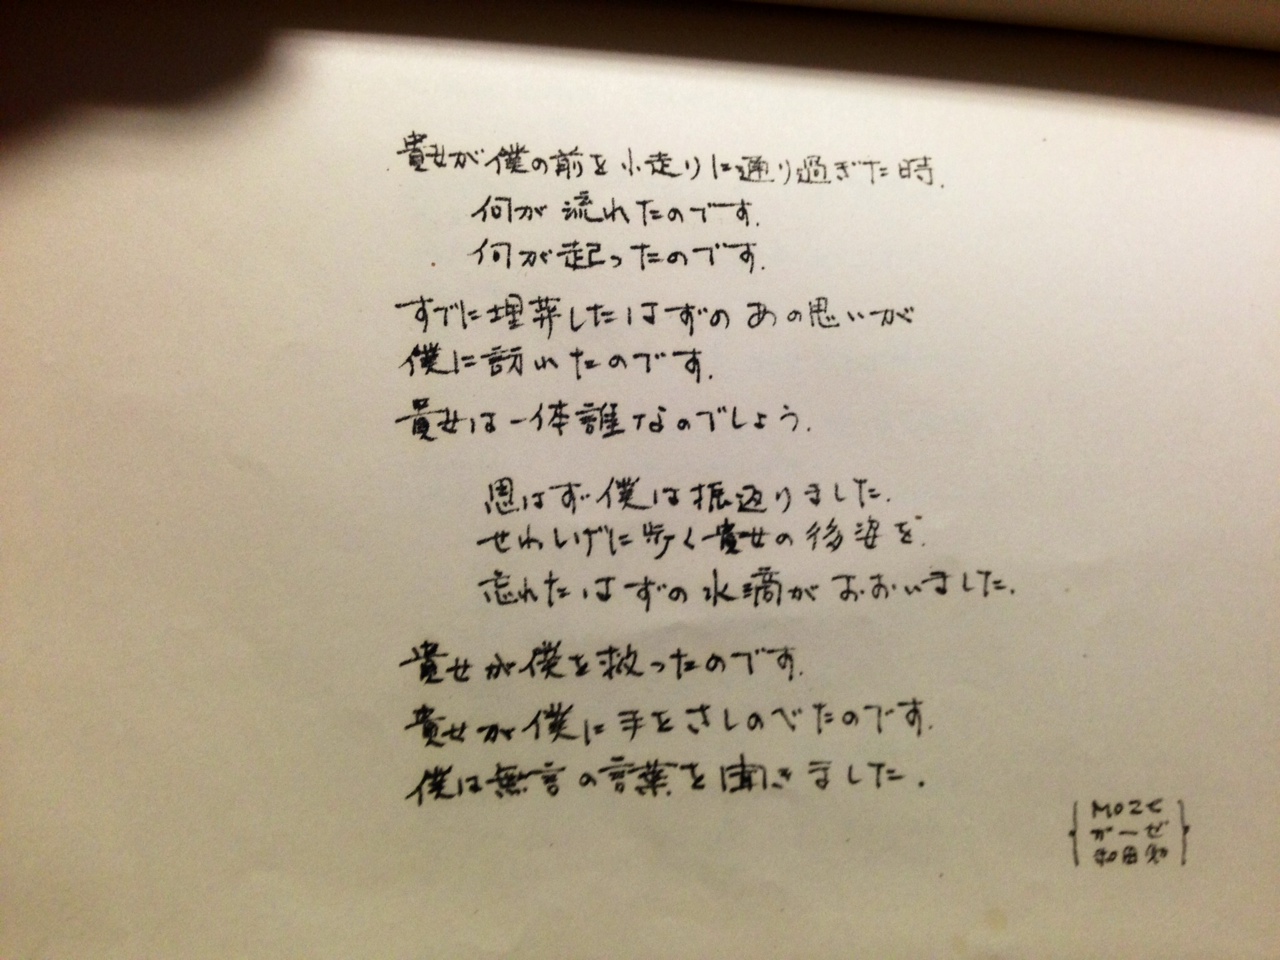 貴女が僕の前を小走りに通り過ぎた時.
何が流れたのです.
何が起ったのです.
すでに埋葬したはずのあの思いが
僕に訪れたのです.
貴女は一体誰なのでしょう.
思はず僕は振返りました.
せわしげに歩く貴女の後姿を.
忘れたはずの水滴がおおいました.
貴女が僕を救ったのです.
貴女が僕に手をさしのべたのです.
僕は無言の言葉を聞きました.
ガーゼ
和田